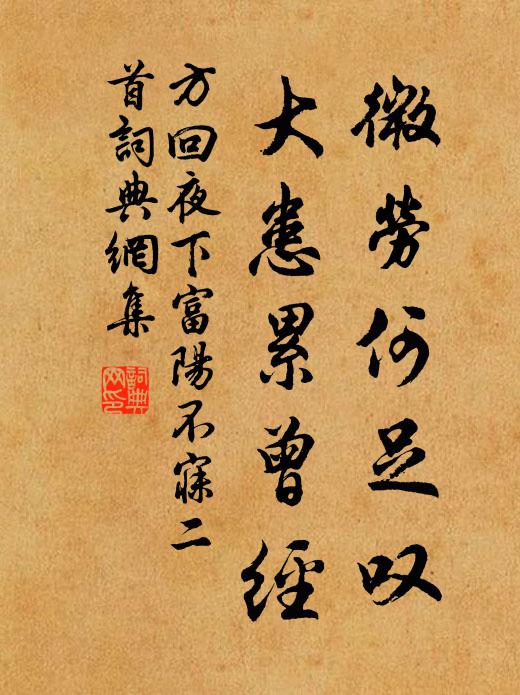 微勞何足叹
大患累曾經
方回夜下富陽不寐二
首詞典網集
詞典
网印